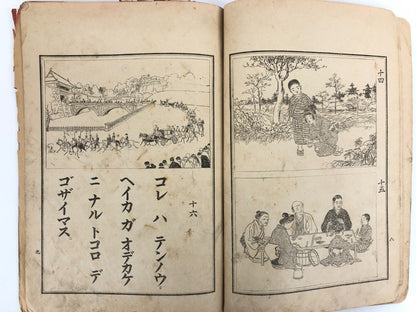 十四
十五
八
十六
コレ ハ テンノウ
ヘイカ ガ オデカケ
ニ ナル トコロ デ
ゴザイマス
九